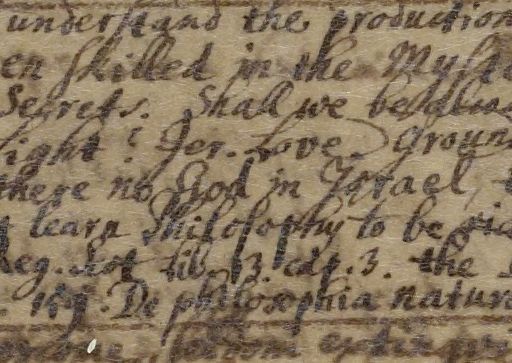 understand the production
en skilled in the
Secrets. Shall we be
ight? Jer. Love Groun
there no God in Israel,
learn Philosophy to be
Reg. Sot lib. 13. cap. 3. the
De philosophia natur